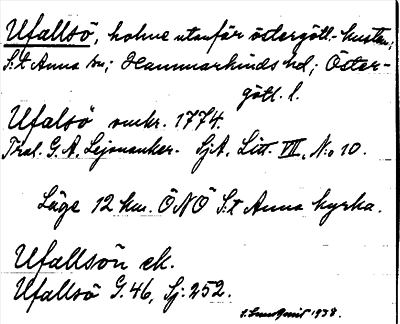 Ufallsö, holme utanför östergötl.-kusten;
S:t Anna sn; Hammarkinds hd; Öster-
götl. l.
Ufalsö omkr. 1774.
Tral. G. A. Lejonanker. SjA. Litt. VII, No 10.
Läge 12 km. ÖNÖ S:t Anna kyrka.
Ufallsön ek.
Ufallsö G. 46, Sj: 252.
1938.